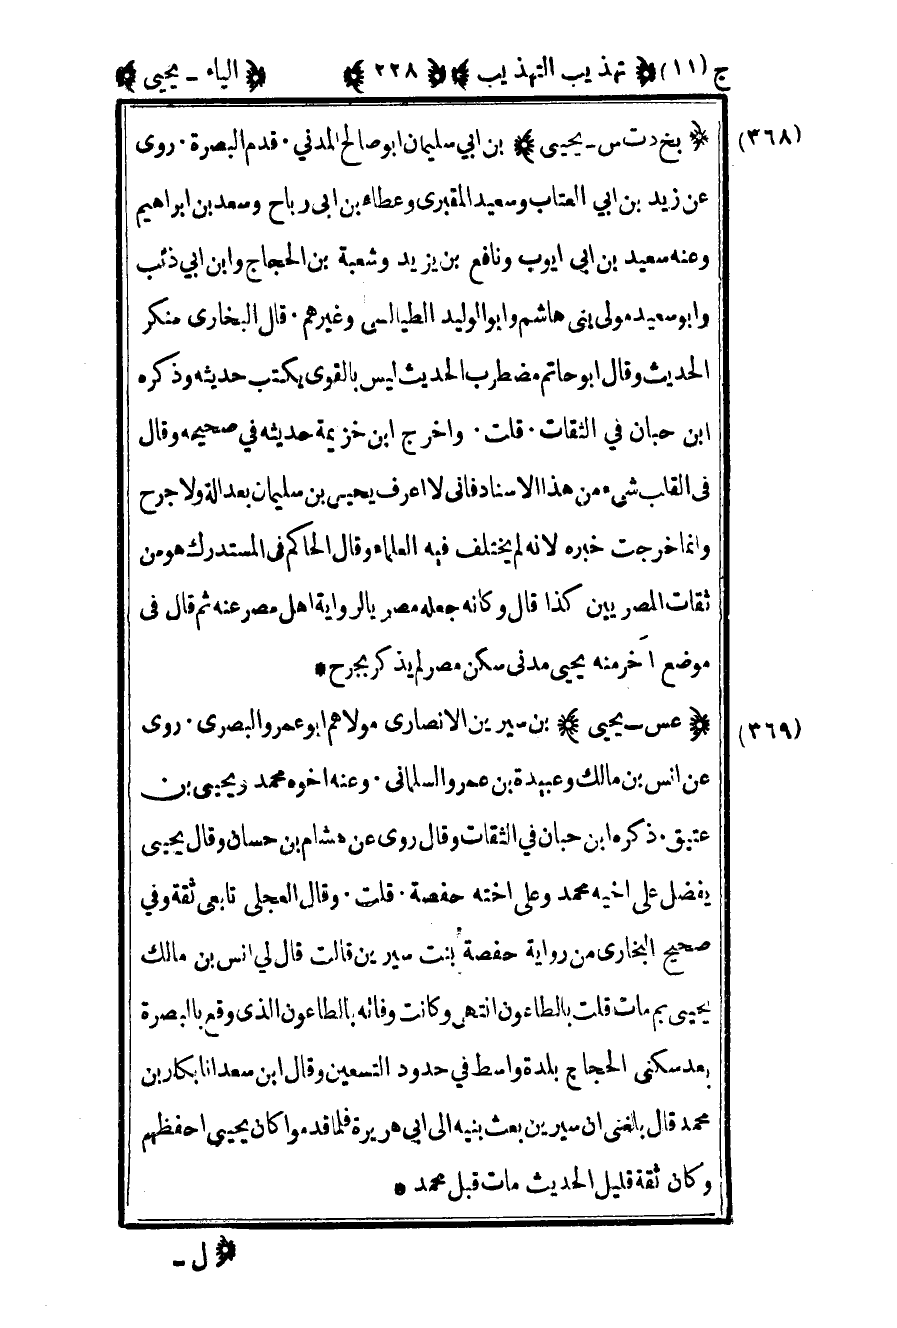 ج (١١) ﴿ تهذيب التهذيب ﴾ ﴿ ٢٢٨ ﴾ ﴿ الياء ـ يحيى ﴾
(٣٦٨) ﴿ بخ د ت س ـ يحيى ﴾ بن ابي سليمان ابو صالح المدني · قدم البصرة · روى
عن زيد بن ابي العتاب وسعيد المقبرى وعطاء بن ابى رباح وسعد بن ابراهيم
وعنه سعيد بن ابى ايوب ونافع بن يزيد وشعبة بن الحجاج وابن ابي ذئب
وابو سعيد مولى بنى هاشم وابو الوليد الطيالسى وغيرهم · قال البخارى منكر
الحديث وقال ابو حاتم مضطرب الحديث ليس بالقوى يكتب حديثه وذكره
ابن حبان في الثقات · قلت · واخرج ابن خزيمة حديثه في صحيحه وقال
فى القلب شىء من هذا الاسناد فانى لا اعرف يحيى بن سليمان بعدالة ولا جرح
وانما خرجت خبره لانه لم يختلف فيه العلماء وقال الحاكم فى المستدرك هو من
ثقات المصريين كذا قال وكانه جعله مصر يا لرواية اهل مصر عنه ثم قال فى
موضع آخر منه يحيى مدنى سكن مصر لم يذكر بجرح *
(٣٦٩) ﴿ عس ـ يحيى ﴾ بن سيرين الانصارى مولاهم ابو عمرو البصرى · روى
عن انس بن مالك وعبيدة بن عمرو السلمانى · وعنه اخوه محمد ويحيى بن
عتيق · ذكره ابن حبان في الثقات وقال روى عن هشام بن حسان وقال يحيى
يفضل على اخيه محمد وعلى اخته حفصة · قلت · وقال العجلى تابعى ثقة وفي
صحيح البخارى من رواية حفصة بنت سيرين قالت قال لي انس بن مالك
يحيى بم مات قلت بالطاعون انتهى وكانت وفاته بالطاعون الذى وقع بالبصرة
بعد سكنى الحجاج بلدة واسط في حدود التسعين وقال ابن سعد انا بكار بن
محمد قال بلغنى ان سيرين بعث بنيه الى ابي هريرة فلما قدموا كان يحيى احفظهم
وكان ثقة قليل الحديث مات قبل محمد *
﴿ ل ـ